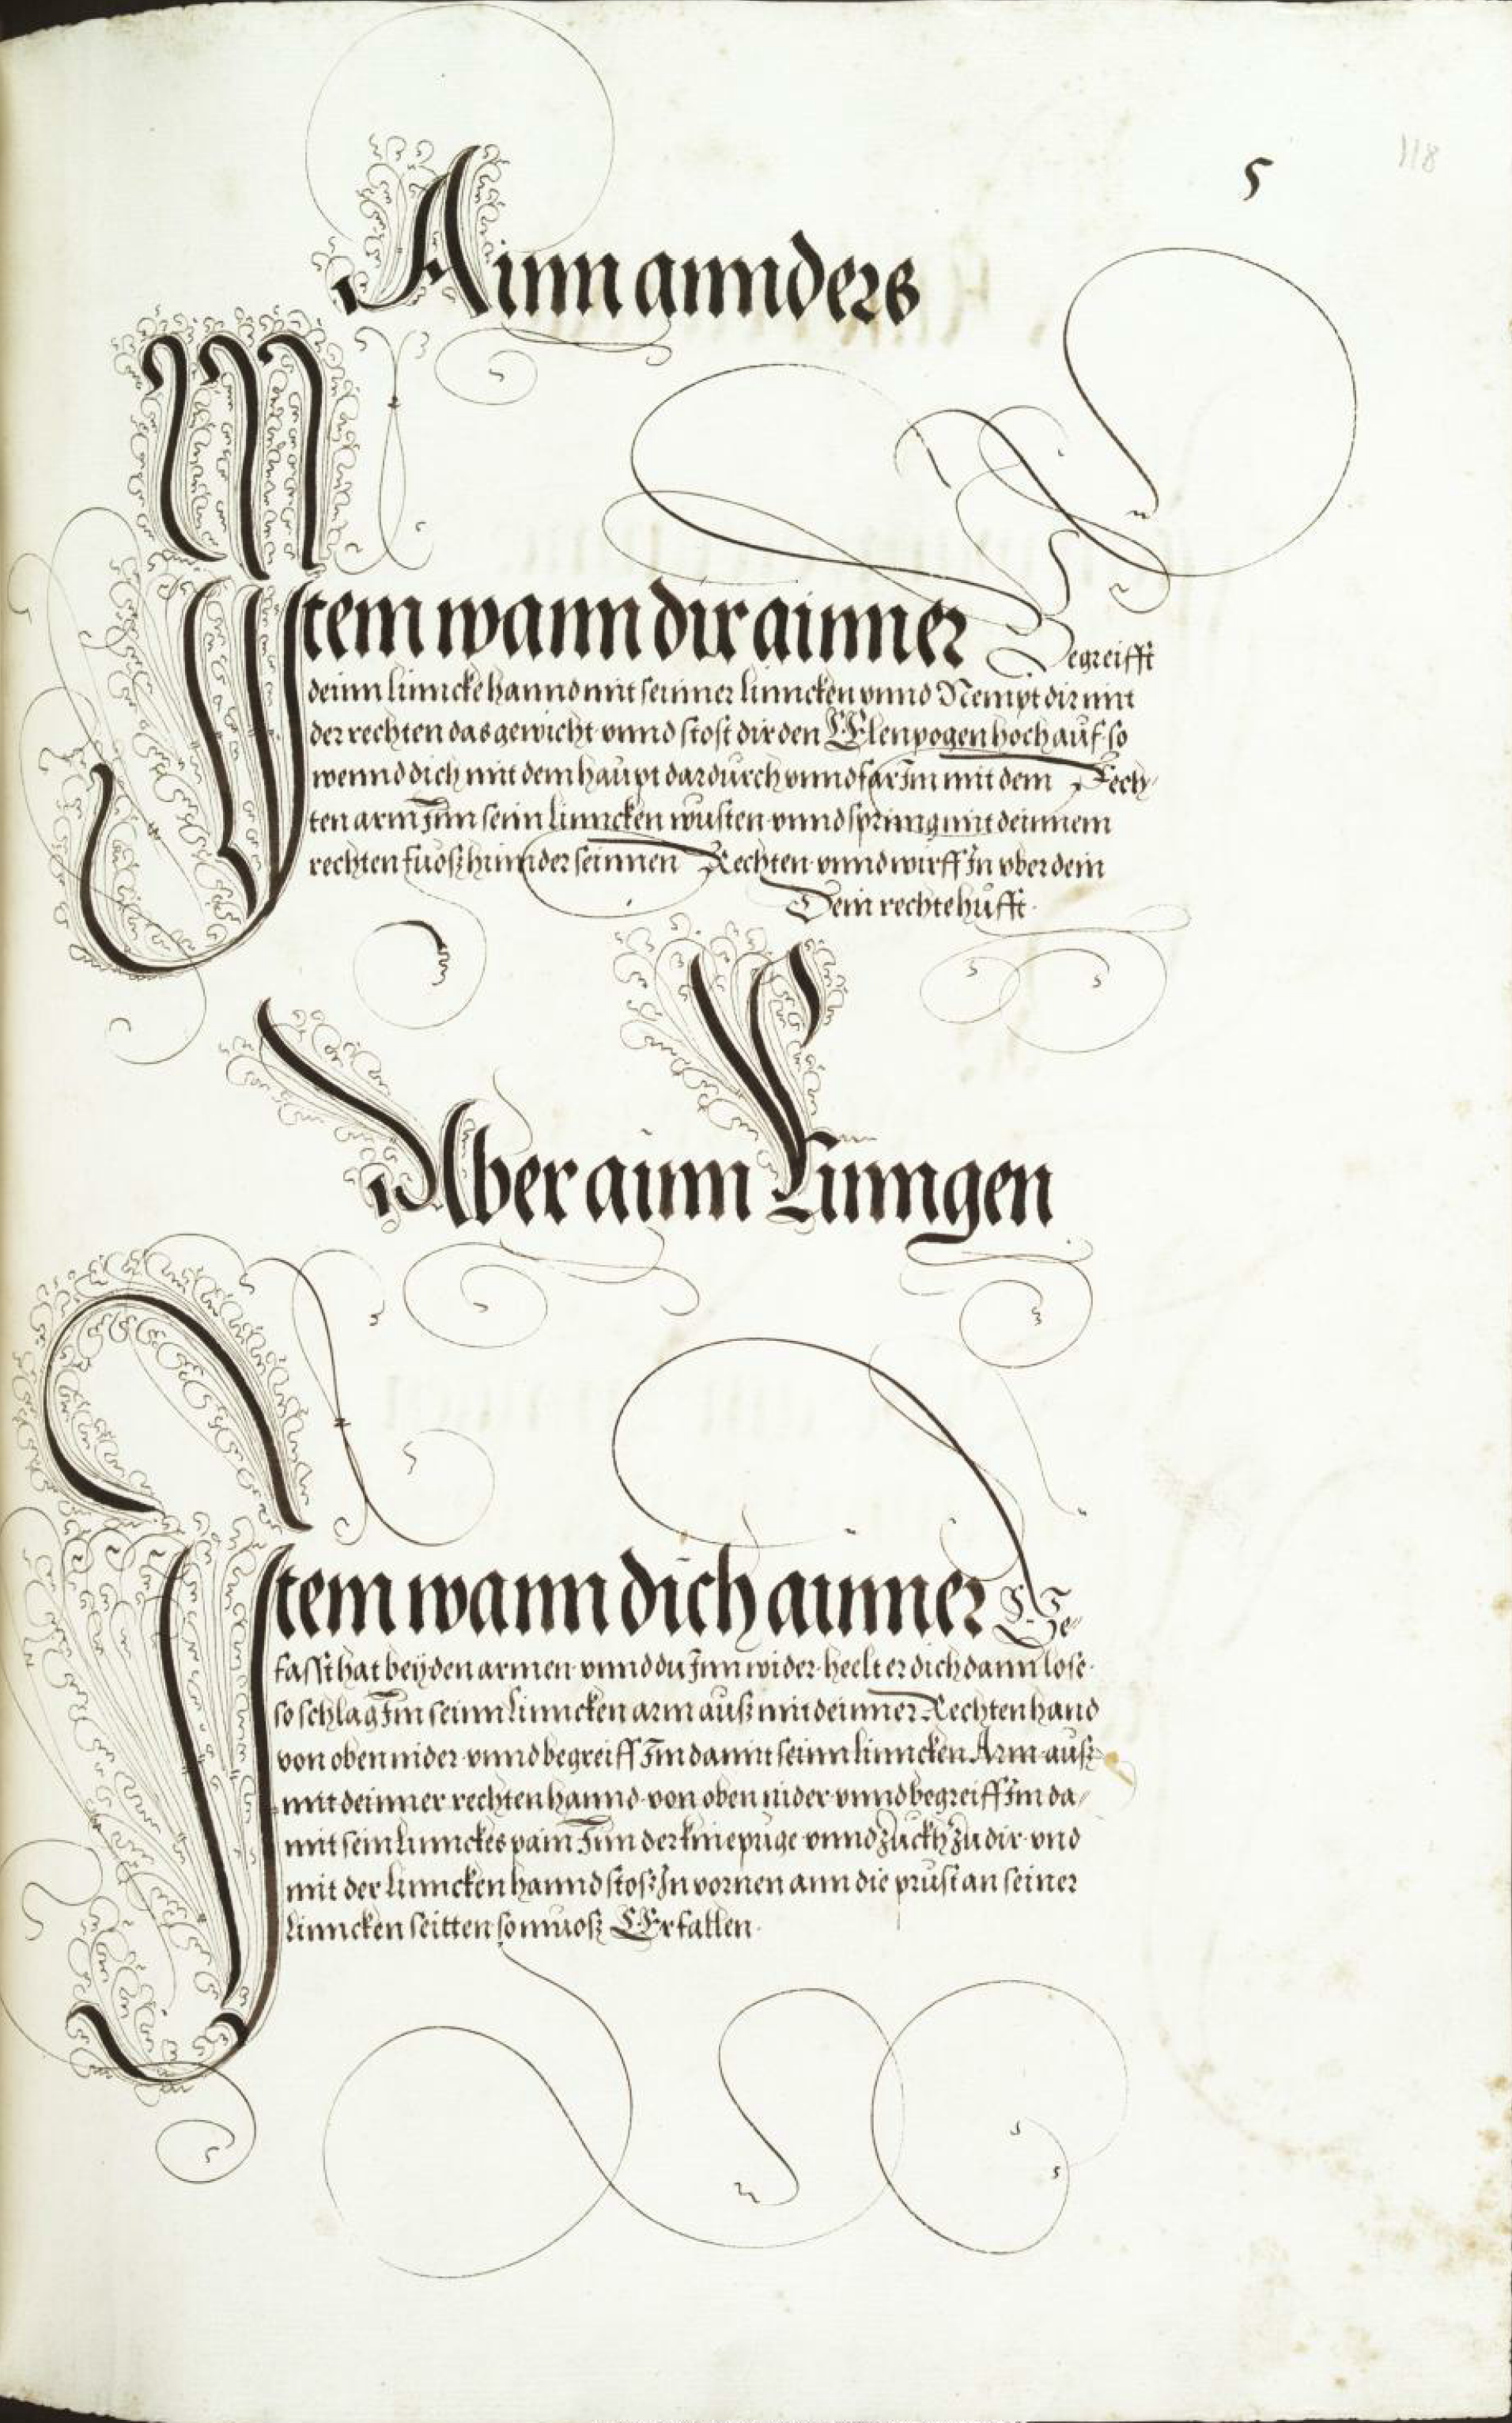 118
5
Ainn annders
Item wann dir ainner Begreifft
deinn linncke hannd mit seinner linncken vnnd Nempt dir mit
der rechten das gewicht vnnd stost dir den Elenpogen hoch auf so
wennd dich mit dem haupt dardurch vnnd far Im mit dem Rech-
ten arm Inn seinn linncken wusten vnnd spring mit deinnem
rechten fuosz hinnder seinnen Rechten vnnd wirff In vber dein
Dein rechte hufft.
Aber ainn Rinngen
Item wann dich ainner Ge-
fasst hat bey den armen vnnd du Inn wider heelt er dich dann lose
so schlag Im seinn linncken arm ausz mit deinner Rechten hand
von oben nider vnnd begreiff Im damit seinn linncken Arm ausz
mit deinner rechten hannd von oben nider vnnd begreiff Im da-
mit sein linnckes pain Inn der kniepuge vnnd zuckh zu dir vnd
mit der linncken hannd stosz In vornen ann die prust an seiner
linncken seitten so muosz Er fallen.